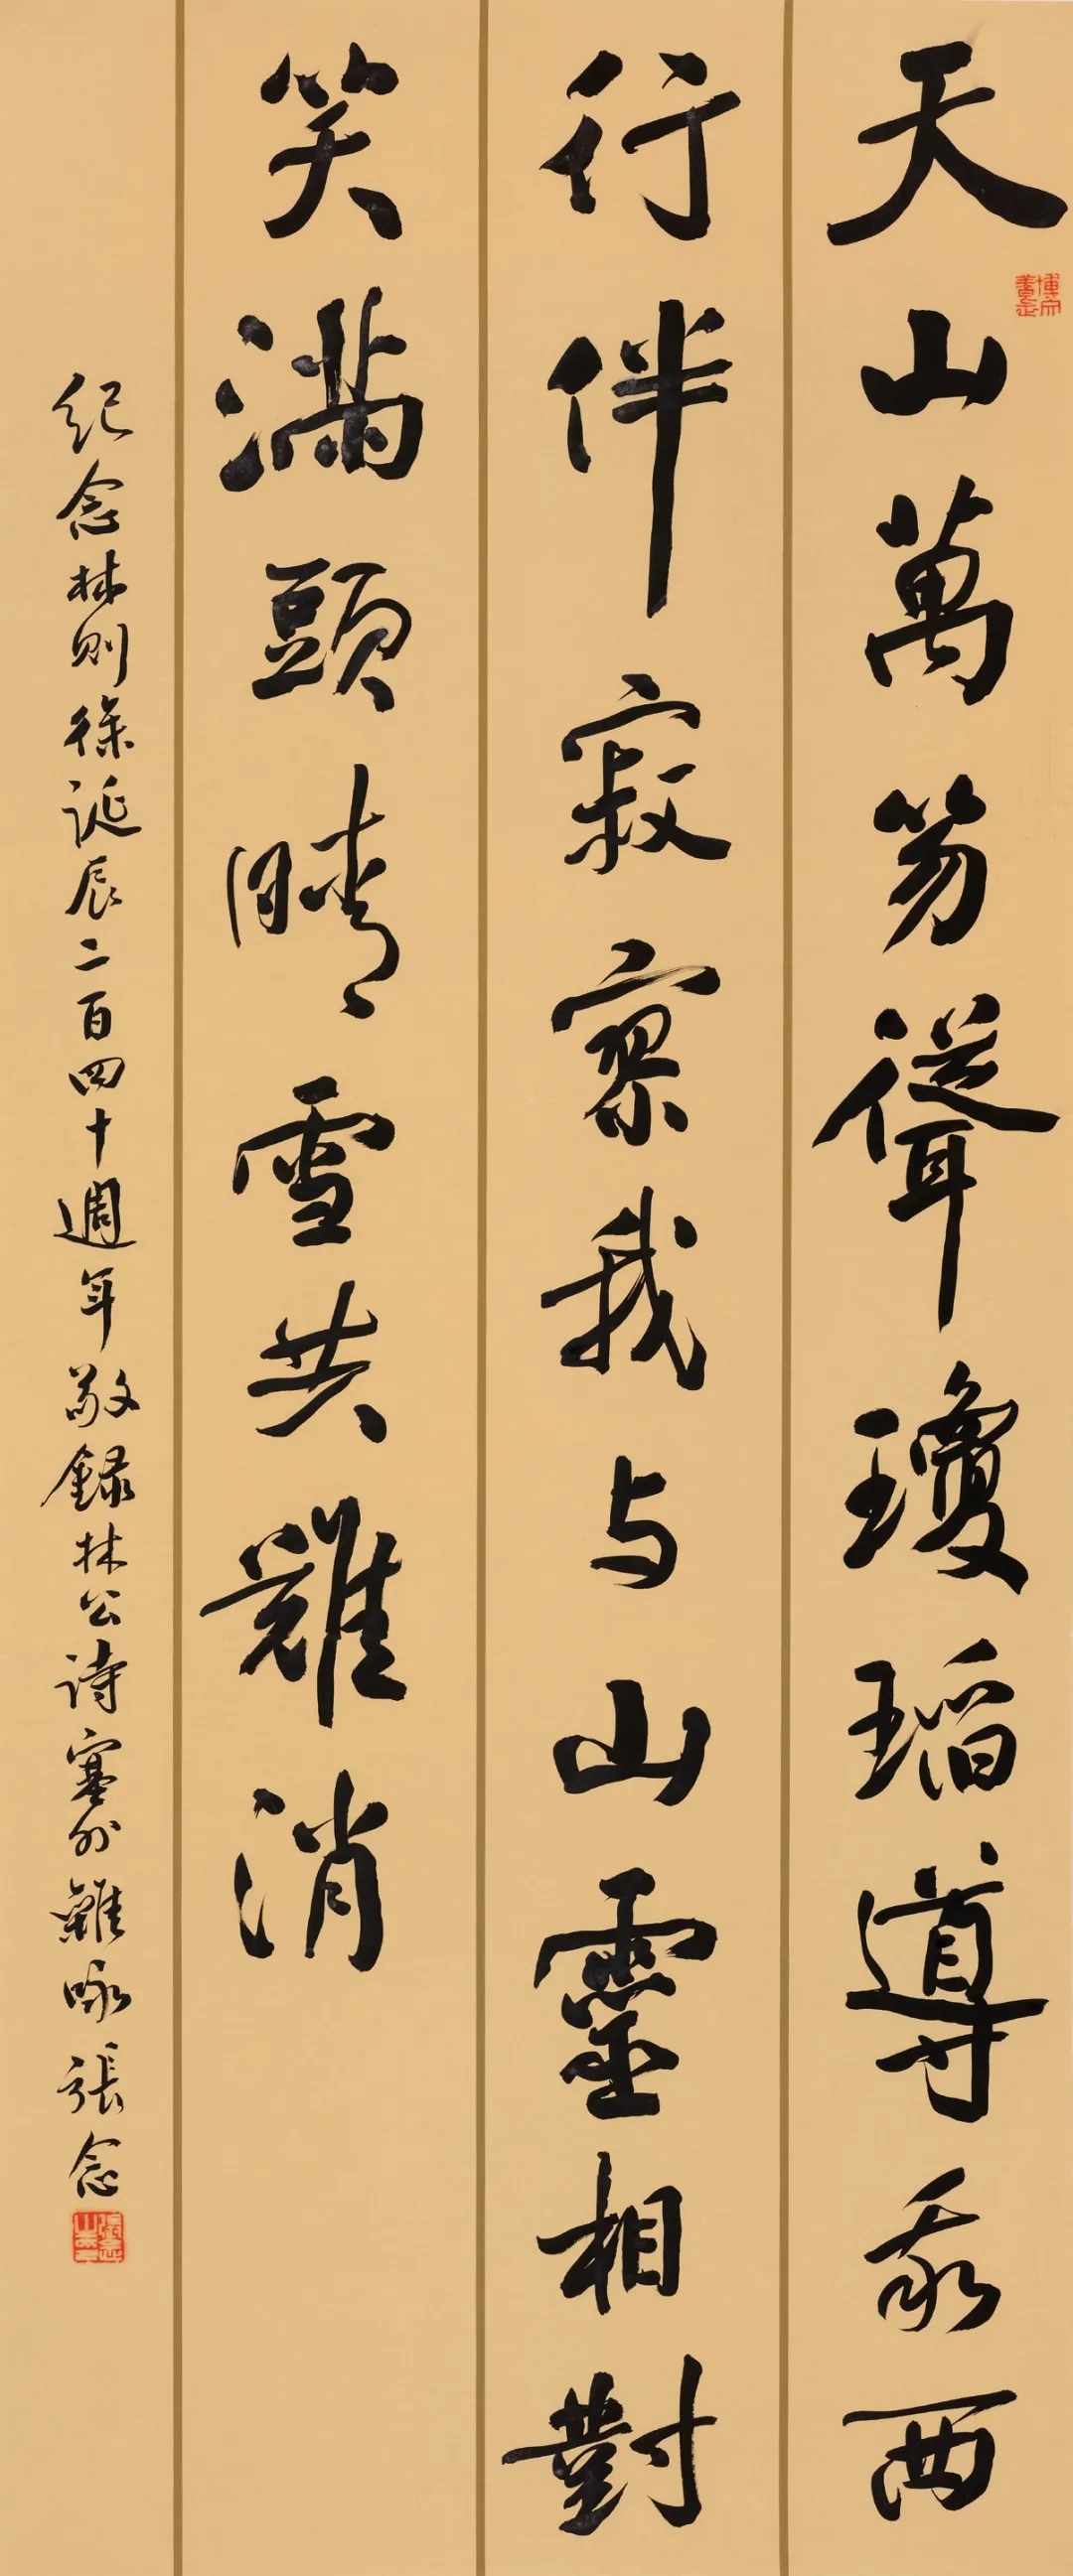 天山萬笏聳瓊瑤導我西
行伴寂寥我与山靈相對
笑滿頭晴雪共難消
紀念林則徐誕辰二百四十週年敬録林公詩塞外雜咏張念